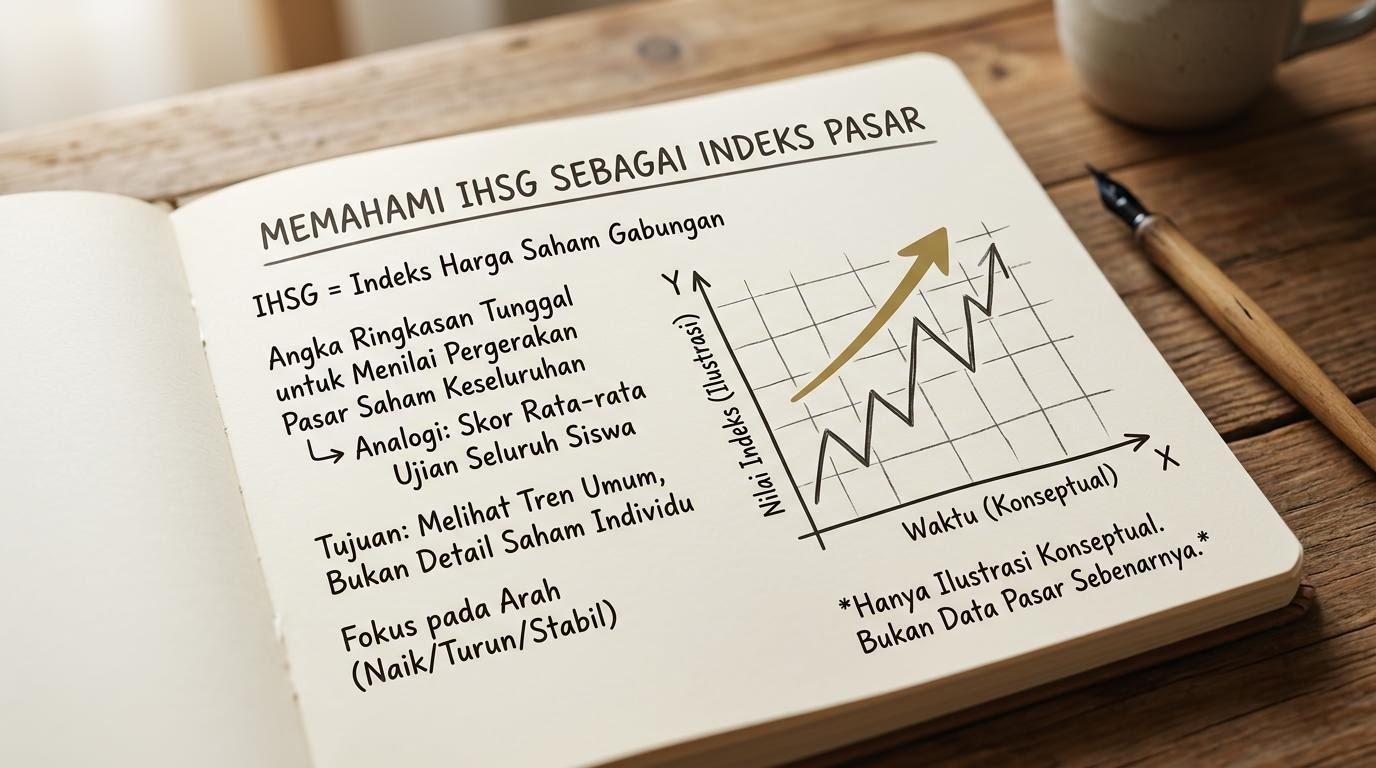 MEMAHAMI IHSG SEBAGAI INDEKS PASAR
IHSG = Indeks Harga Saham Gabungan
Angka Ringkasan Tunggal
untuk Menilai Pergerakan
Pasar Saham Keseluruhan
↳ Analogi: Skor Rata-rata
Ujian Seluruh Siswa
Tujuan: Melihat Tren Umum,
Bukan Detail Saham Individu
Fokus pada Arah
(Naik/Turun/Stabil)
Y
Nilai Indeks (Ilustrasi)
X
Waktu (Konseptual)
*Hanya Ilustrasi Konseptual.
Bukan Data Pasar Sebenarnya.*